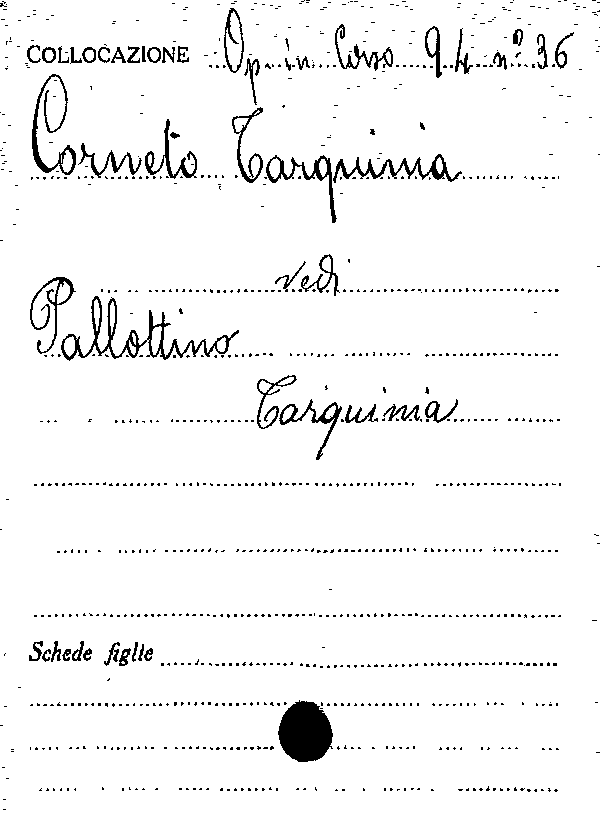 COLLOCAZIONE Op. in Corso 94 n.º 36
Corneto Tarquinia
vedi
Pallottino
Tarquinia
Schede figlie